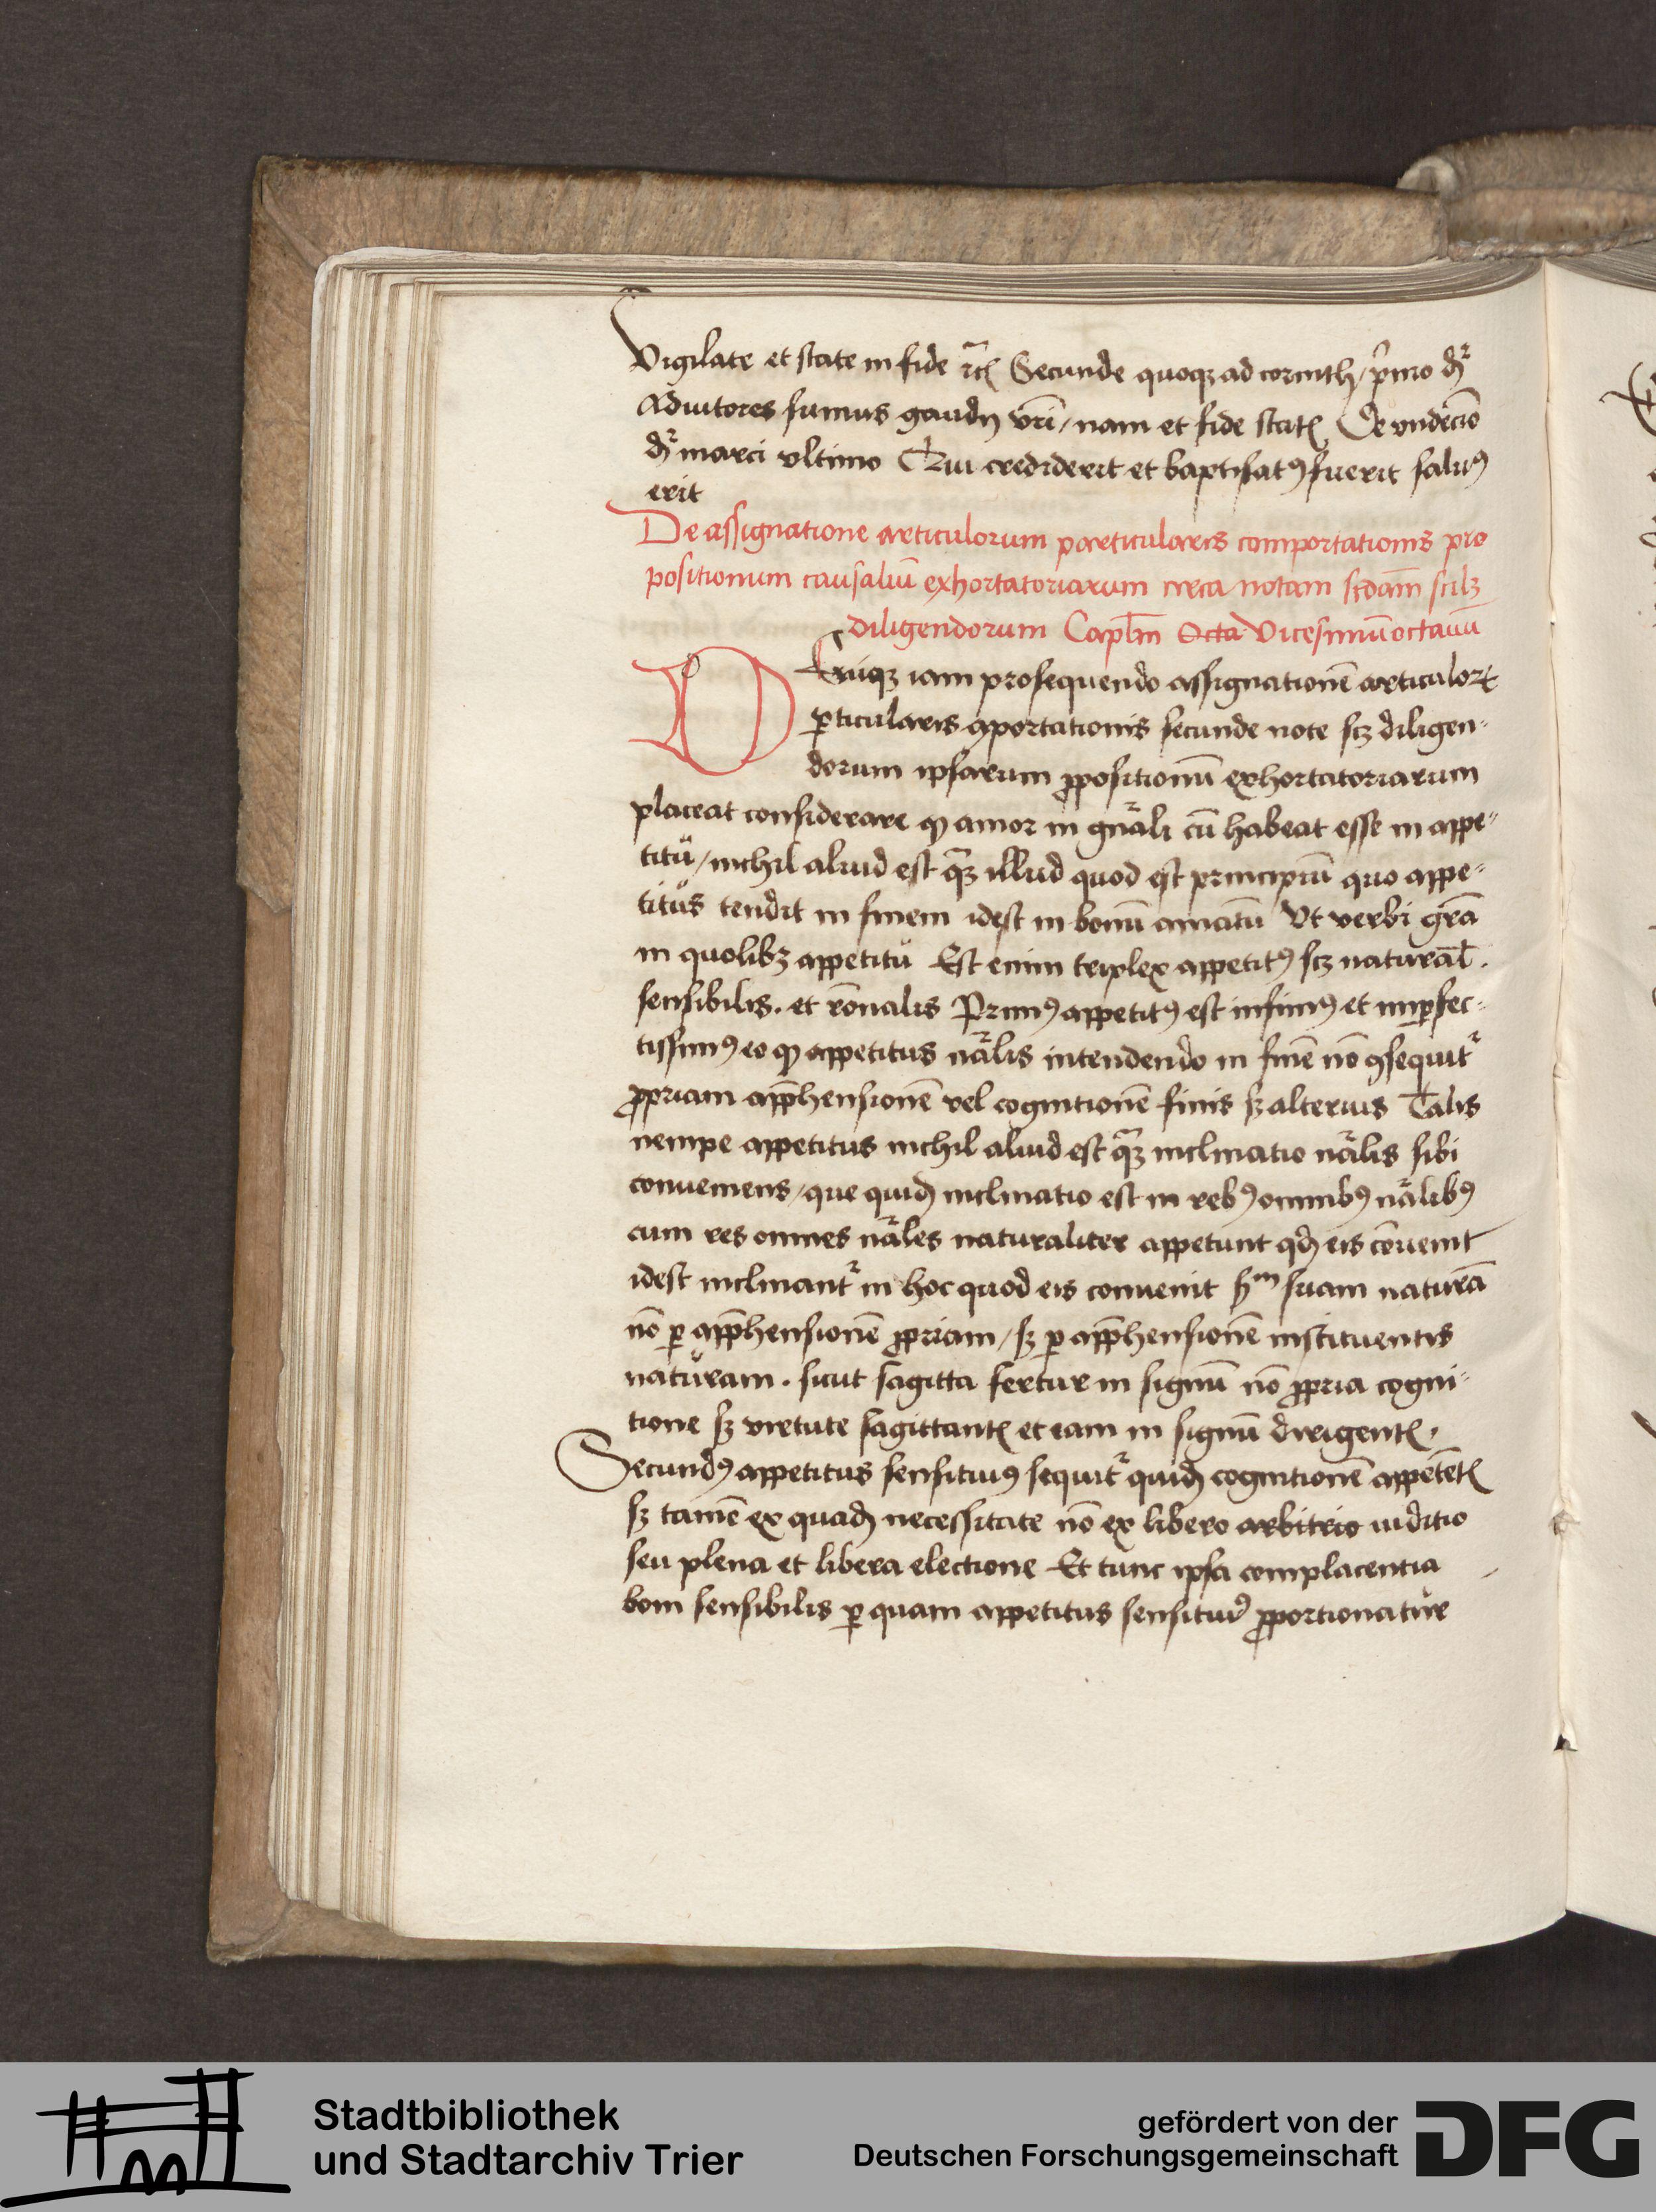 Vigilate et state in fide rc̄ Secunde quoqȝ ad corinth / p̄mo dr̄
Adiutores sumus gaudij vr̄i / nam et fide statis De vndecīo
dr̄ marci vltimo Qui crediderit et baptisatꝰ fuerit saluꝰ
erit
De assignatione articulorum particularis comportationis pro
positionum causaliū exhortatoriarum circa notam scdam̄ scilȝ
diligendorum Caplm̄ Octa Vicesimūoctauū
DEniqȝ iam prosequendo assignationē articuloꝝ
ꝑticularis ꝯportationis secunde note scȝ diligen-
dorum ipsarum ꝓpositionū exhortatoriarum
placeat considerare ꝙ amor in gn̄ali cū habeat esse in appe-
titu / nichil aliud est qȝ̄ illud quod est principiū quo appe-
titus tendit in finem idest in bonū amatū Vt verbi grā
in quolibȝ appetitu Est enim triplex appetitꝰ scȝ natural̄.
sensibilis. et rōnalis Primꝰ appetitꝰ est infimꝰ et imꝑfec-
tissimꝰ eo ꝙ appetitus nālis intendendo in finē nō ꝯsequit᷑
ꝓpriam app̄hensionē vel cognitionē finis sȝ alterius Talis
nempe appetitus nichil aliud est qȝ̄ inclinatio nālis sibi
conueniens / que quidē inclinatio est in rebꝰ omnibꝰ nālibꝰ
cum res omnes nāles naturaliter appetunt qd̄ eis cōuenit
idest inclinant᷑ in hoc quod eis conuenit sᵐ suam naturā
nō ꝑ app̄hensionē ꝓpriam / sȝ ꝑ app̄hensionē instituentis
naturam. sicut sagitta fertur in signū nō ꝓpria cogni-
tione sȝ virtute sagittantis et eam in signū dirigentis.
Secundꝰ appetitus sensitiuꝰ sequit᷑ quidē cognitionē appetētis
sȝ tamē ex quadā necessitate nō ex libero arbitrio iuditio
seu plena et libera electione Et tunc ipsa complacentia
boni sensibilis ꝑ quam appetitus sensitiuꝰ ꝓportionatur
Stadtbibliothek
und Stadtarchiv Trier
gefördert von der
Deutschen Forschungsgemeinschaft
DFG